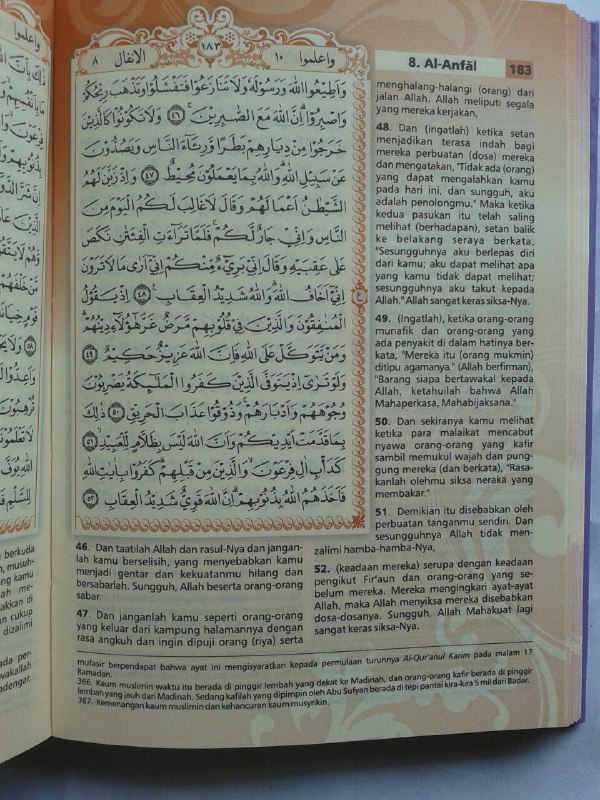 واعلموا ١٠
١٨٣
الانفال ٨
8. Al-Anfāl
183
وَاَطِيْعُوا اللّٰهَ وَرَسُوْلَهٗ وَلَا تَنَازَعُوْا فَتَفْشَلُوْا وَتَذْهَبَ رِيْحُكُمْ
وَاصْبِرُوْاۗ اِنَّ اللّٰهَ مَعَ الصّٰبِرِيْنَ ۚ ٤٦ وَلَا تَكُوْنُوْا كَالَّذِيْنَ
خَرَجُوْا مِنْ دِيَارِهِمْ بَطَرًا وَّرِئَاۤءَ النَّاسِ وَيَصُدُّوْنَ
عَنْ سَبِيْلِ اللّٰهِ ۗوَاللّٰهُ بِمَا يَعْمَلُوْنَ مُحِيْطٌ ٤٧ وَاِذْ زَيَّنَ لَهُمُ
الشَّيْطٰنُ اَعْمَالَهُمْ وَقَالَ لَا غَالِبَ لَكُمُ الْيَوْمَ مِنَ
النَّاسِ وَاِنِّيْ جَارٌ لَّكُمْۚ فَلَمَّا تَرَاۤءَتِ الْفِئَتٰنِ نَكَصَ
عَلٰى عَقِبَيْهِ وَقَالَ اِنِّيْ بَرِيْۤءٌ مِّنْكُمْ اِنِّيْٓ اَرٰى مَا لَا تَرَوْنَ
اِنِّيْٓ اَخَافُ اللّٰهَ ۗوَاللّٰهُ شَدِيْدُ الْعِقَابِ ٤٨ اِذْ يَقُوْلُ
الْمُنٰفِقُوْنَ وَالَّذِيْنَ فِيْ قُلُوْبِهِمْ مَّرَضٌ غَرَّ هٰٓؤُلَاۤءِ دِيْنُهُمْۗ
وَمَنْ يَّتَوَكَّلْ عَلَى اللّٰهِ فَاِنَّ اللّٰهَ عَزِيْزٌ حَكِيْمٌ ٤٩
وَلَوْ تَرٰٓى اِذْ يَتَوَفَّى الَّذِيْنَ كَفَرُوا الْمَلٰۤىِٕكَةُ يَضْرِبُوْنَ
وُجُوْهَهُمْ وَاَدْبَارَهُمْۚ وَذُوْقُوْا عَذَابَ الْحَرِيْقِ ٥٠ ذٰلِكَ
بِمَا قَدَّمَتْ اَيْدِيْكُمْ وَاَنَّ اللّٰهَ لَيْسَ بِظَلَّامٍ لِّلْعَبِيْدِۙ ٥١
كَدَأْبِ اٰلِ فِرْعَوْنَۙ وَالَّذِيْنَ مِنْ قَبْلِهِمْۗ كَفَرُوْا بِاٰيٰتِ اللّٰهِ
فَاَخَذَهُمُ اللّٰهُ بِذُنُوْبِهِمْۗ اِنَّ اللّٰهَ قَوِيٌّ شَدِيْدُ الْعِقَابِ ٥٢
ع
46. Dan taatilah Allah dan rasul-Nya dan jangan-
lah kamu berselisih, yang menyebabkan kamu
menjadi gentar dan kekuatanmu hilang dan
bersabarlah. Sungguh, Allah beserta orang-orang
sabar.
47. Dan janganlah kamu seperti orang-orang
yang keluar dari kampung halamannya dengan
rasa angkuh dan ingin dipuji orang (riya) serta
menghalang-halangi (orang) dari
jalan Allah. Allah meliputi segala
yang mereka kerjakan.
48. Dan (ingatlah) ketika setan
menjadikan terasa indah bagi
mereka perbuatan (dosa) mereka
dan mengatakan, "Tidak ada (orang)
yang dapat mengalahkan kamu
pada hari ini, dan sungguh, aku
adalah penolongmu." Maka ketika
kedua pasukan itu telah saling
melihat (berhadapan), setan balik
ke belakang seraya berkata,
"Sesungguhnya aku berlepas diri
dari kamu; aku dapat melihat apa
yang kamu tidak dapat melihat;
sesungguhnya aku takut kepada
Allah." Allah sangat keras siksa-Nya.
49. (Ingatlah), ketika orang-orang
munafik dan orang-orang yang
ada penyakit di dalam hatinya ber-
kata, "Mereka itu (orang mukmin)
ditipu agamanya." (Allah berfirman),
"Barang siapa bertawakal kepada
Allah, ketahuilah bahwa Allah
Mahaperkasa, Mahabijaksana."
50. Dan sekiranya kamu melihat
ketika para malaikat mencabut
nyawa orang-orang yang kafir
sambil memukul wajah dan pung-
gung mereka (dan berkata), "Rasa-
kanlah olehmu siksa neraka yang
membakar."
51. Demikian itu disebabkan oleh
perbuatan tanganmu sendiri. Dan
sesungguhnya Allah tidak men-
zalimi hamba-hamba-Nya,
52. (keadaan mereka) serupa dengan keadaan
pengikut Fir'aun dan orang-orang yang se-
belum mereka. Mereka mengingkari ayat-ayat
Allah, maka Allah menyiksa mereka disebabkan
dosa-dosanya. Sungguh, Allah Mahakuat lagi
sangat keras siksa-Nya.
mufasir berpendapat bahwa ayat ini mengisyaratkan kepada permulaan turunnya Al-Qur'anul Karim pada malam 17
Ramadan.
366. Kaum muslimin waktu itu berada di pinggir lembah yang dekat ke Madinah, dan orang-orang kafir berada di pinggir
lembah yang jauh dari Madinah. Sedang kafilah yang dipimpin oleh Abu Sufyan berada di tepi pantai kira-kira 5 mil dari Badar.
367. Kemenangan kaum muslimin dan kehancuran kaum musyrikin.